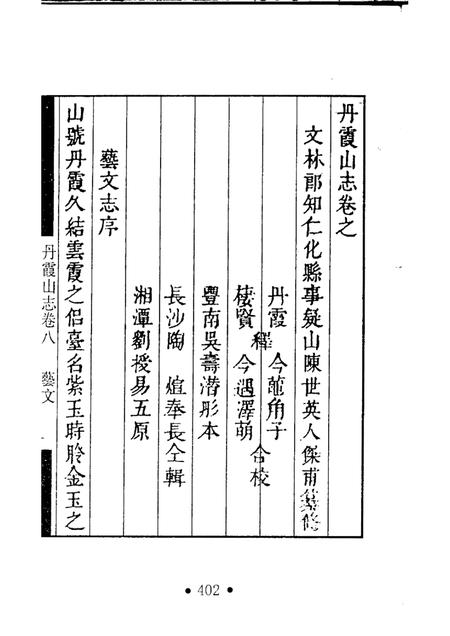 丹霞山志卷之
文林郎知仁化縣事疑山陳世英人傑甫纂修
丹霞 釋 今龍角子
棲賢 今遇澤萌 仝校
豐南吳壽潛彤本
長沙陶 煊奉長仝輯
湘潭劉授易五原
藝文志序
山號丹霞久結雲霞之侶臺名紫玉時聆金玉之
丹霞山志卷八 藝文
• 402 •